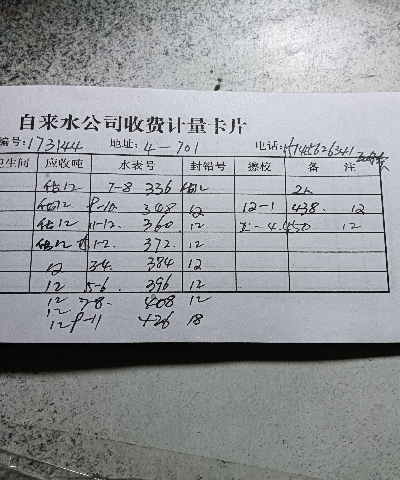 自来水公司收费计量卡片
编号: 173144 地址: 4-701 电话:
卫生间 应收吨 水表号 封铅号 擦校 备 注
估12 7-8 336 估12
估12 9-10 348 12 12-1 438. 12
估12 11-12. 360. 12 -4. 450 12
估12 1-2. 372. 12
12 3-4. 384 12
12 5-6. 396 12
12 7-8. 408 12
12 9-11 426 18